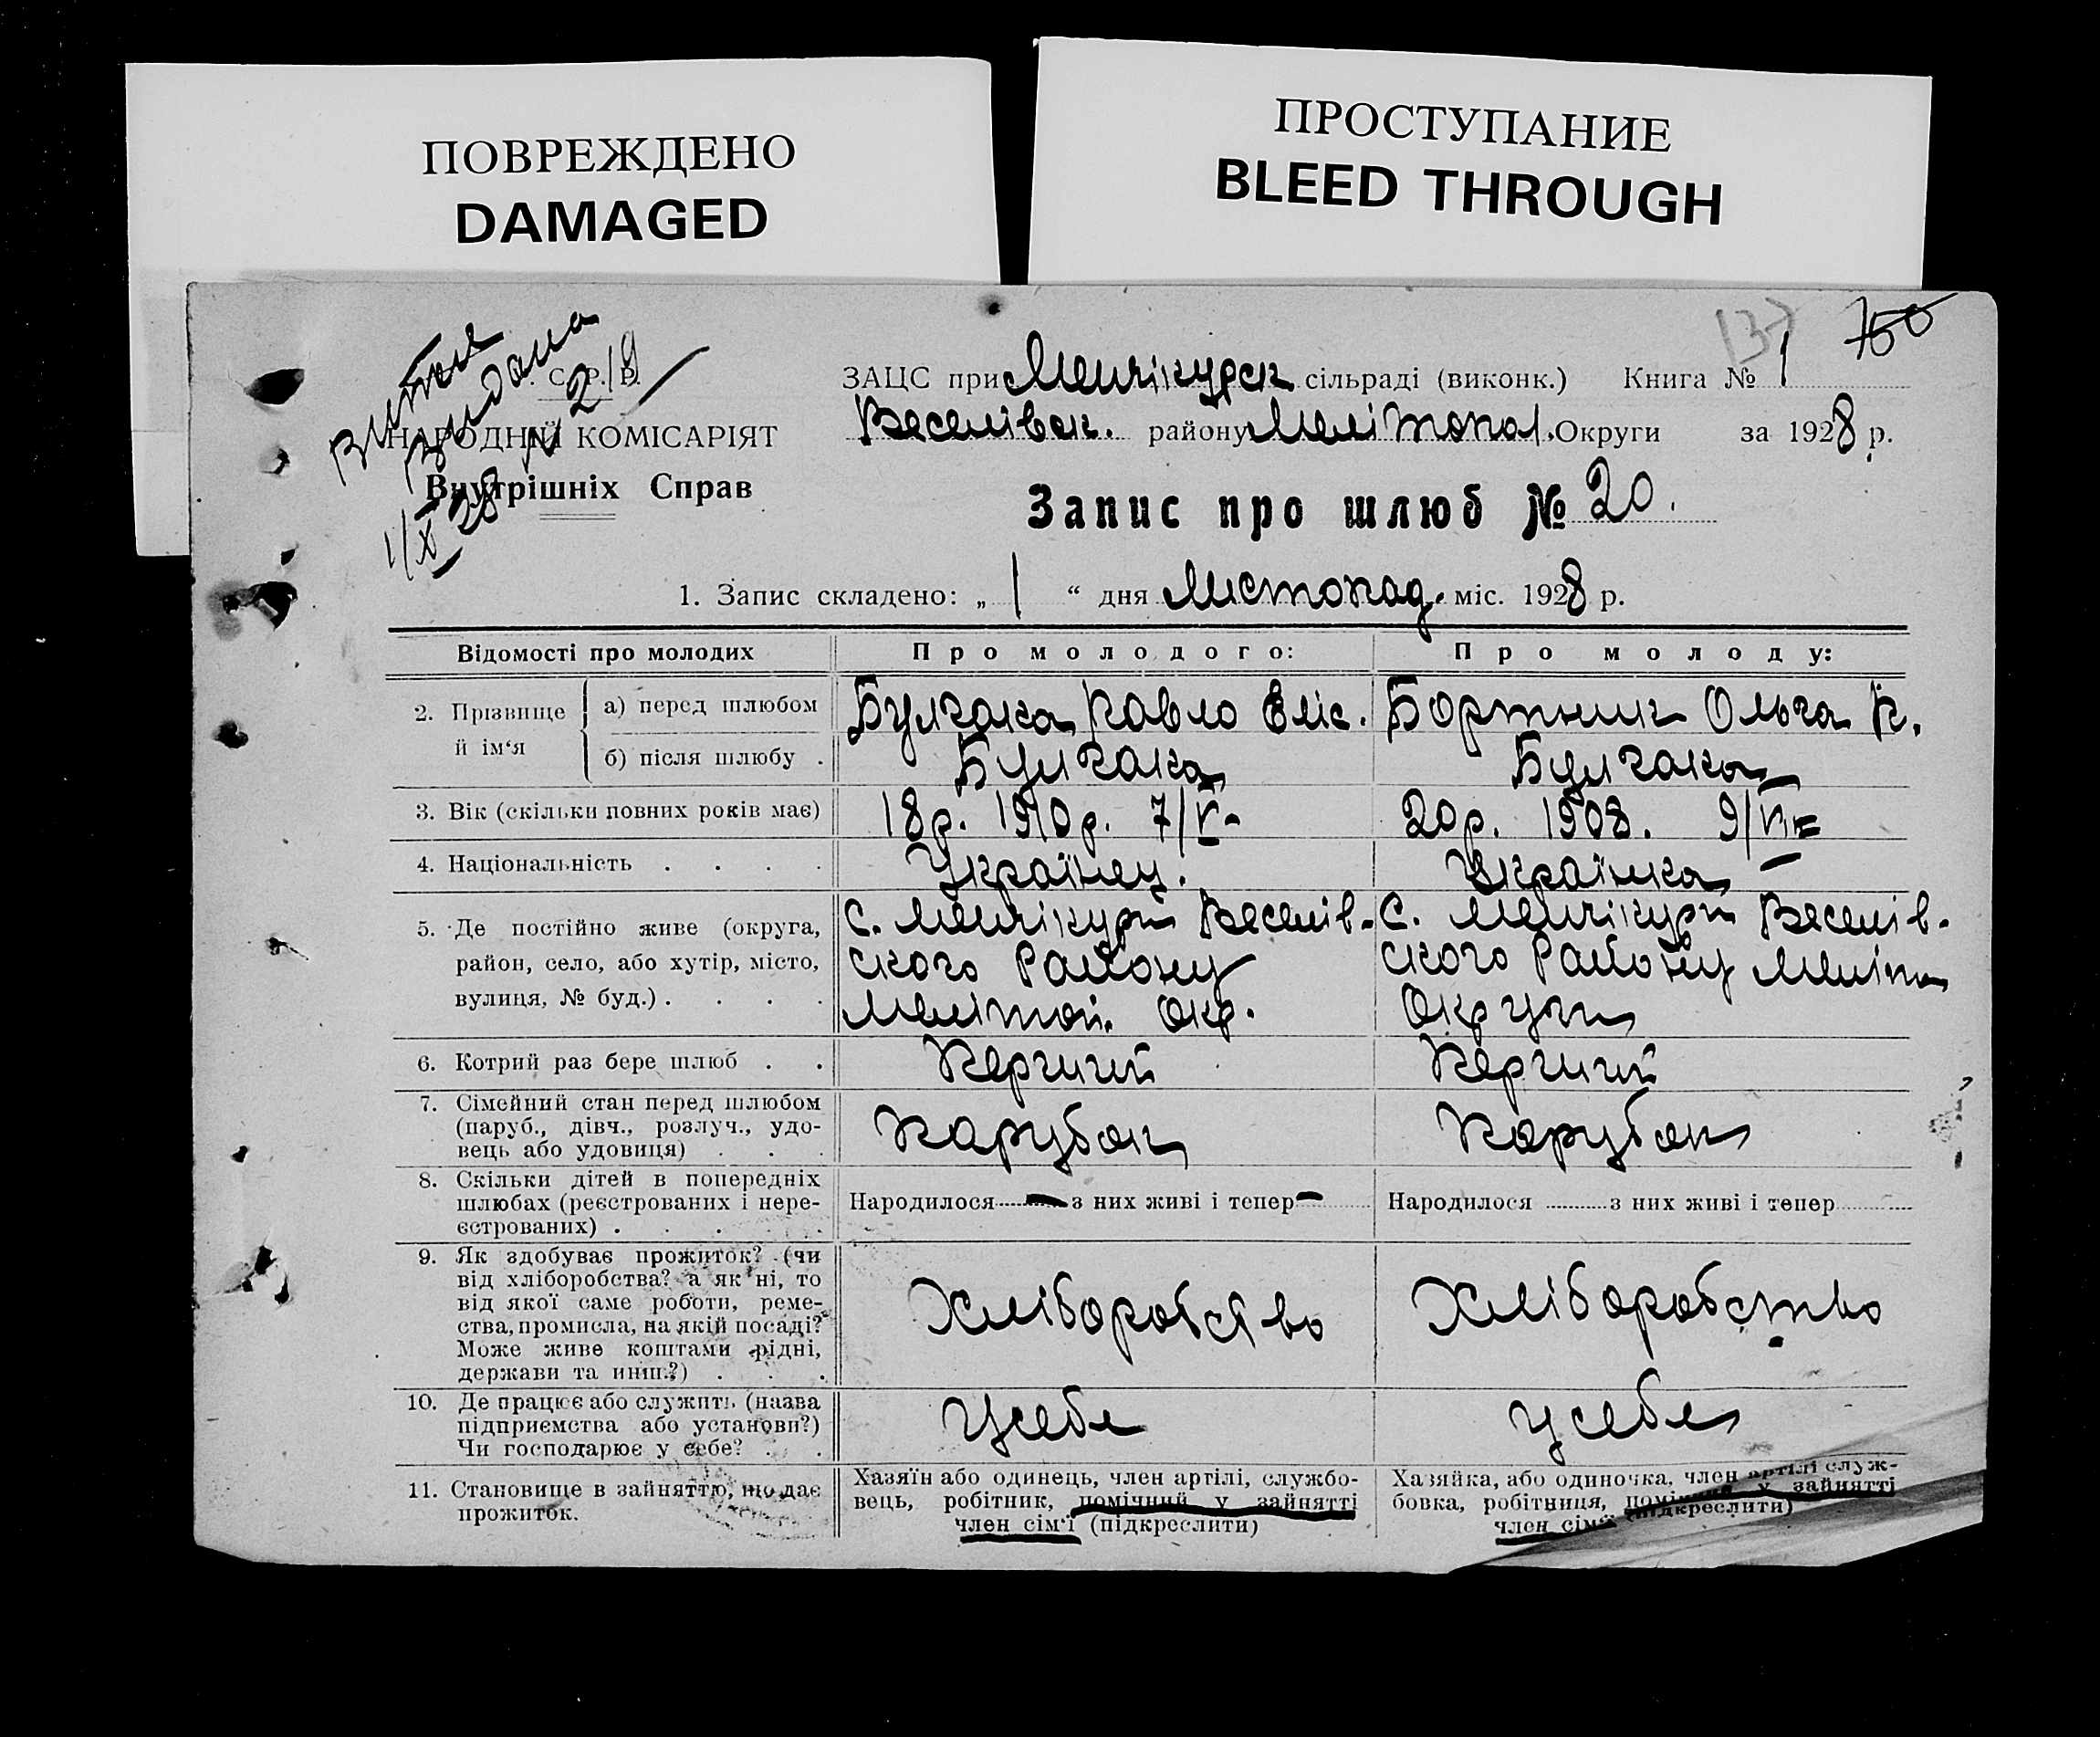 ПОВРЕЖДЕНО
DAMAGED
ПРОСТУПАНИЕ
BLEED THROUGH
137 760
Витяг
Видана
N 219
1/X 28
. С. Р. Р.
НАРОДНІЙ КОМІСАРІЯТ
Внутрішніх Справ
ЗАЦС при Менчікурск сільраді (виконк.) Книга № 1
Веселівск. району Мелітопол. Округи за 1928 р.
Запис про шлюб № 20.
1. Запис складено: „ 1 “ дня Листопад. міс. 1928 р.
Відомості про молодих Про молодого: Про молоду:
2. Прізвище й ім‘я
а) перед шлюбом Булгака Павло Еліс. Бортник Ольга П.
б) після шлюбу . Булгака Булгака
3. Вік (скільки повних років має) 18р. 1910р. 7/V- 20р. 1908. 9/VII
4. Національність . . . . Українец. Українка –
5. Де постійно живе (округа, район, село, або хутір, місто, вулиця, № буд.) . . . .
с. Менчікури Веселів-
ского Району
Мелітоп. Окр.
с. Менчікури Веселів-
ского Району Меліт
Округи
6. Котрий раз бере шлюб . . Перший Перший
7. Сімейний стан перед шлюбом
(паруб., дівч., розлуч., удо-
вець або удовиця) . . . Парубок Парубок
8. Скільки дітей в попередніх
шлюбах (реєстрованих і нере-
єстрованих) . . . .
Народилося – з них живі і тепер –
Народилося ..... з них живі і тепер .....
9. Як здобуває прожиток? (чи
від хліборобства? а як ні, то
від якої саме роботи, реме-
ства, промисла, на якій посаді?
Може живе коштами рідні,
держави та инш.?) . . .
Хліборобство Хліборобство
10. Де працює або служить (назва
підприємства або установи?)
Чи господарює у себе? . .
Усебе усебе
11. Становище в зайняттю, що дає
прожиток.
Хазяїн або одинець, член артілі, службо-
вець, робітник, помічний у зайнятті
член сім‘ї (підкреслити)
Хазяйка, або одиночка, член артілі служ-
бовка, робітниця, помічний у зайнятті
член сім‘ї (підкреслити)